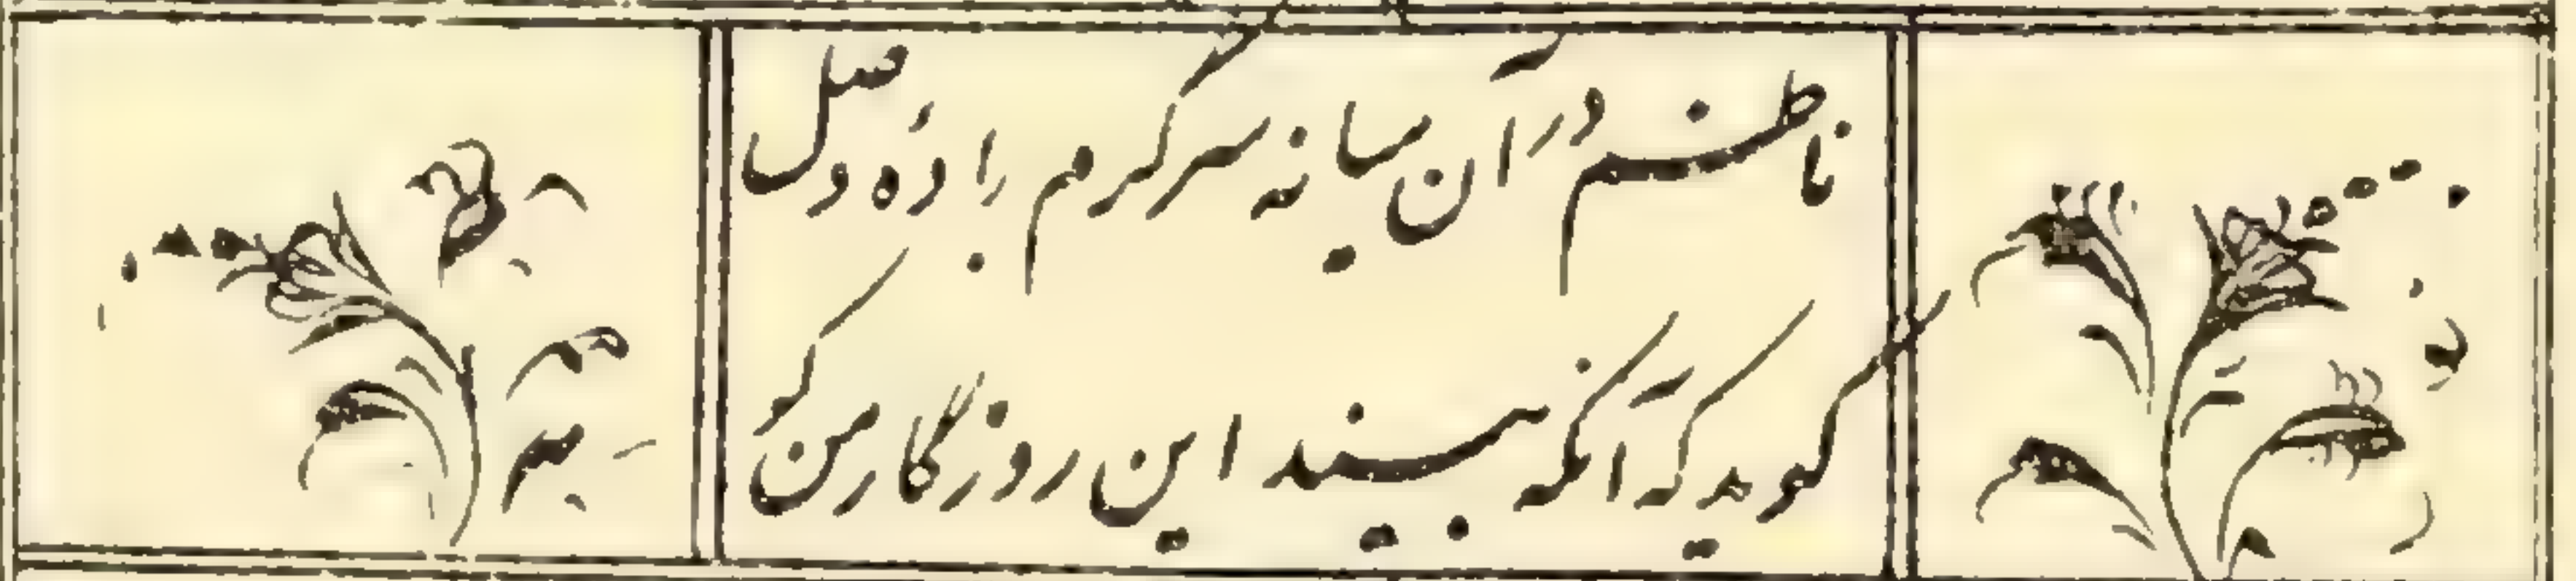 ناظم در آن میانه سرکرم بادهٔ وصل
کوید که آنکه بیند این روزگار من کو